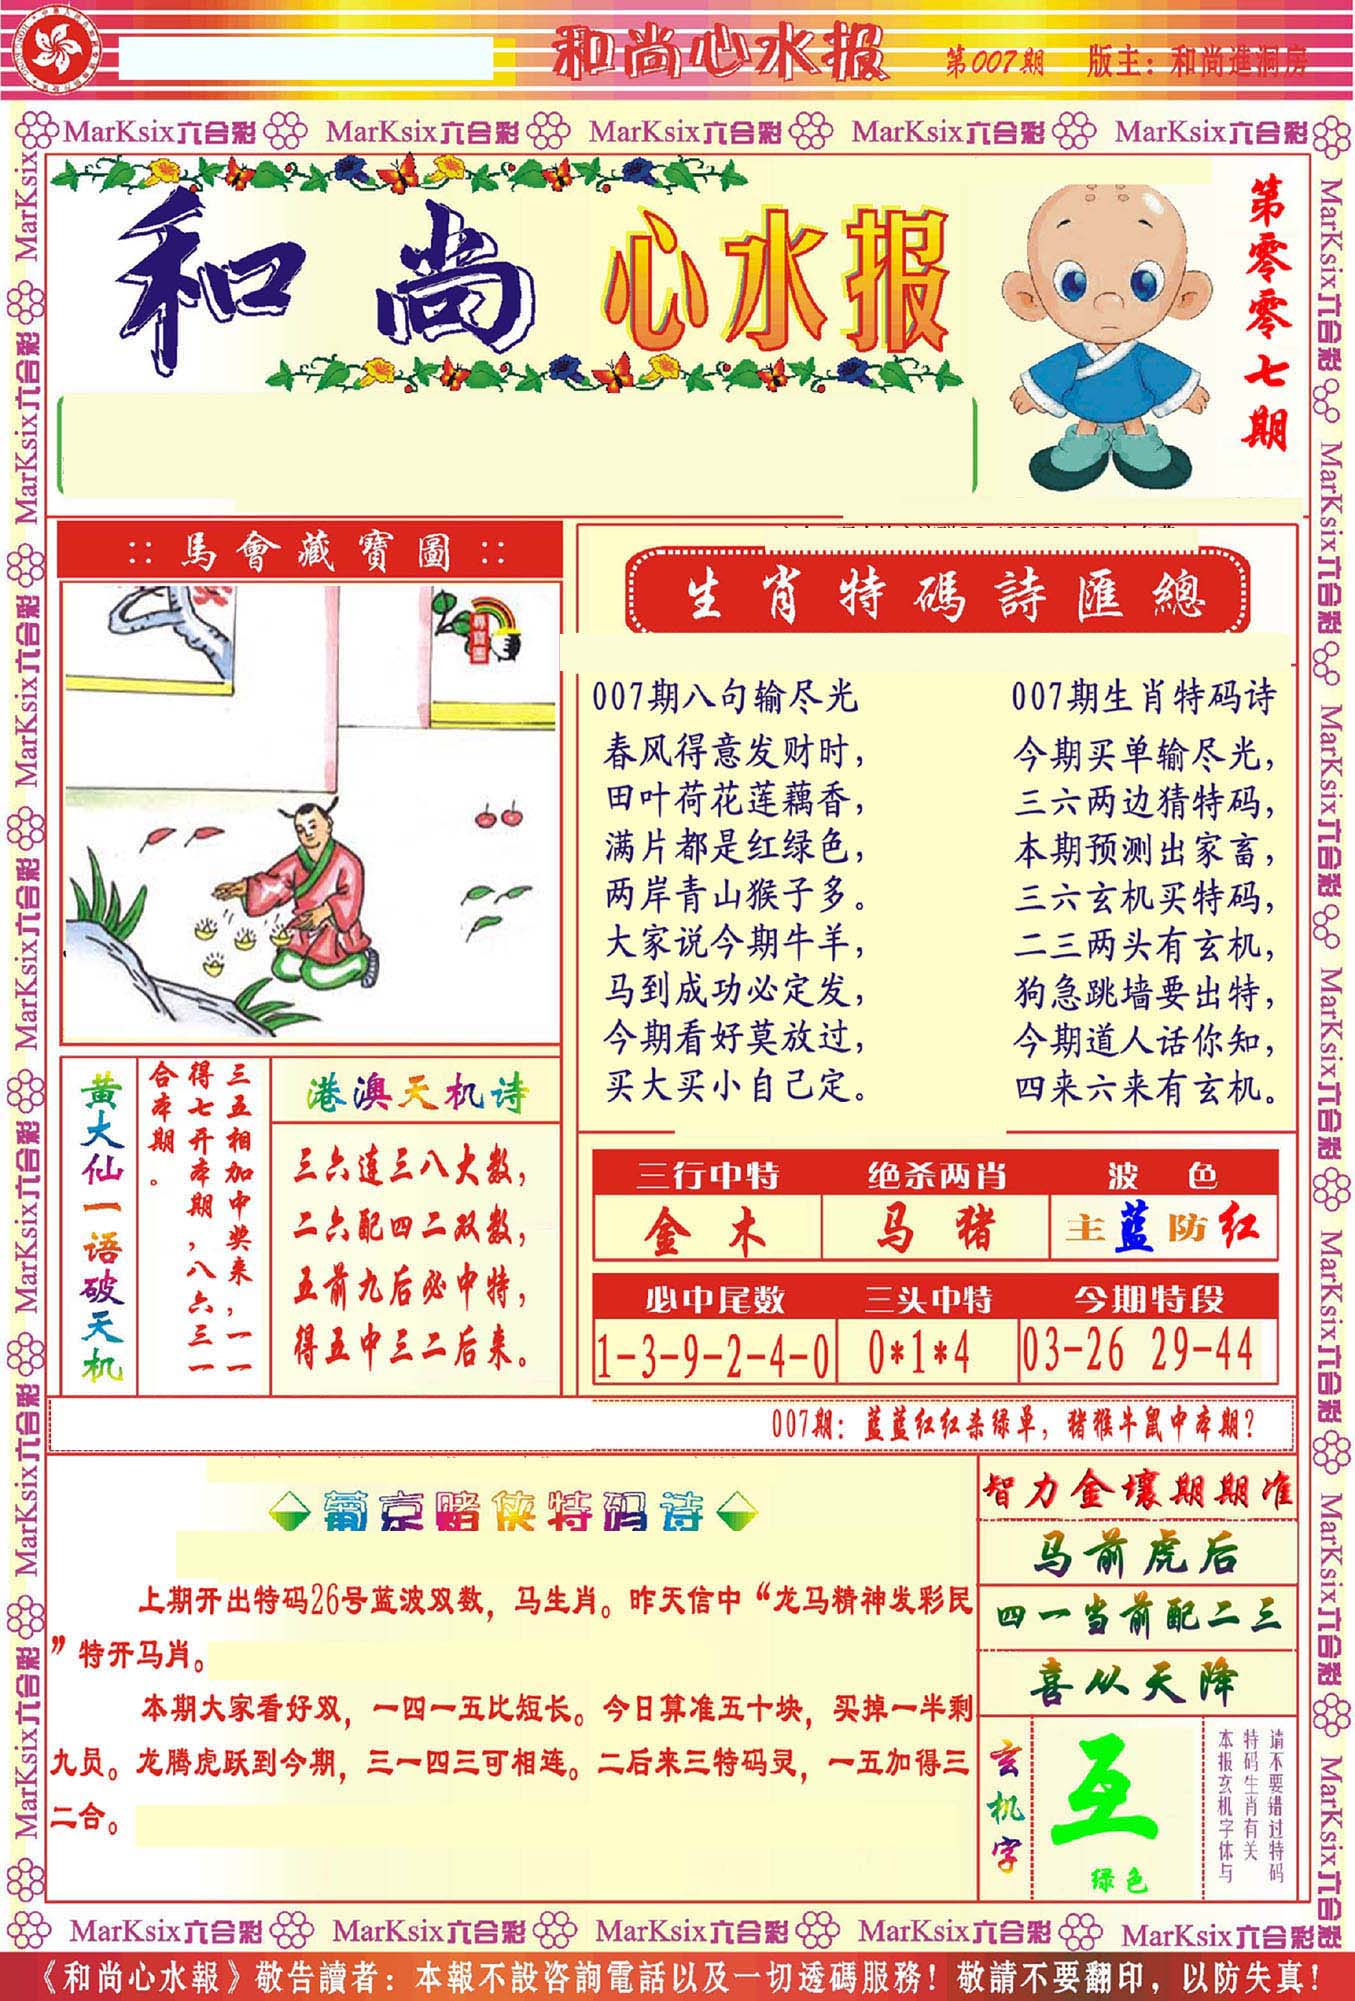 和尚心水报 第007期 版主：和尚進洞房
MarKsix六合彩 MarKsix六合彩 MarKsix六合彩 MarKsix六合彩 MarKsix六合彩
和尚心水报
第零零七期
::馬會藏寶圖::
尋寶圖
生肖特碼詩匯總
007期八句输尽光
春风得意发财时，
田叶荷花莲藕香，
满片都是红绿色，
两岸青山猴子多。
大家说今期牛羊，
马到成功必定发，
今期看好莫放过，
买大买小自己定。
007期生肖特码诗
今期买单输尽光，
三六两边猜特码，
本期预测出家畜，
三六玄机买特码，
二三两头有玄机，
狗急跳墙要出特，
今期道人话你知，
四来六来有玄机。
黄大仙一语破天机
三五相加中奖来，一一
得七开本期，八六三一
合本期。
港澳天机诗
三六连三八大数，
二六配四二双数，
五前九后必中特，
得五中三二后来。
三行中特 绝杀两肖 波色
金木 马猪 主蓝防红
必中尾数 三头中特 今期特段
1-3-9-2-4-0 0*1*4 03-26 29-44
007期：蓝蓝红红杀绿单，猪猴牛鼠中本期？
葡京赌侠特码诗
上期开出特码26号蓝波双数，马生肖。昨天信中“龙马精神发彩民
”特开马肖。
本期大家看好双，一四一五比短长。今日算准五十块，买掉一半剩
九员。龙腾虎跃到今期，三一四三可相连。二后来三特码灵，一五加得三
二合。
智力金壤期期准
马前虎后
四一当前配二三
喜从天降
玄机字
互
绿色
请不要错过特码
特码生肖有关
本报玄机字体与
MarKsix六合彩 MarKsix六合彩 MarKsix六合彩 MarKsix六合彩 MarKsix六合彩
《和尚心水報》敬告讀者：本報不設咨詢電話以及一切透碼服務！敬請不要翻印，以防失真！